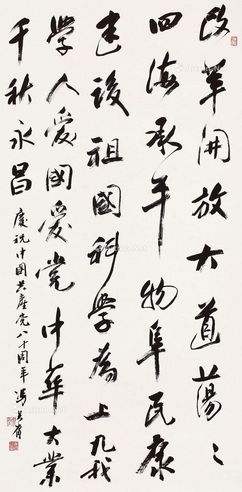 改革開放大道蕩〻
四海承平物阜民康
建設祖國科學為上凡我
學人愛國愛党中華大業
千秋永昌
慶祝中國共產党八十周年